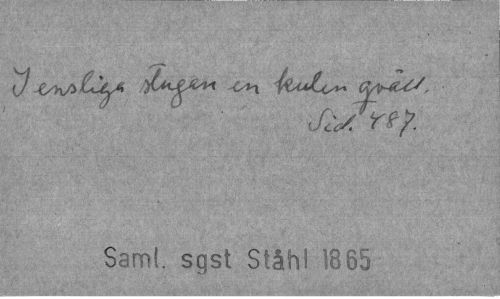 I ensliga stugan en kulen qväll.
Sid. 487.
Saml. sgst Ståhl 1865